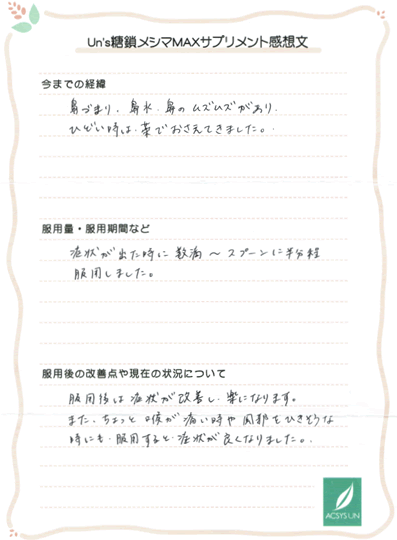 Un's糖鎖メシマMAXサプリメント感想文
今までの経緯
鼻づまり、鼻水、鼻のムズムズがあり、
ひどい時は、薬でおさえてきました。
服用量・服用期間など
症状が出た時に数滴～スプーンに半分程
服用しました。
服用後の改善点や現在の状況について
服用後は症状が改善し、楽になります。
また、ちょっと喉が痛い時や風邪をひきそうな
時にも、服用すると、症状が良くなりました。
ACSYS-UN